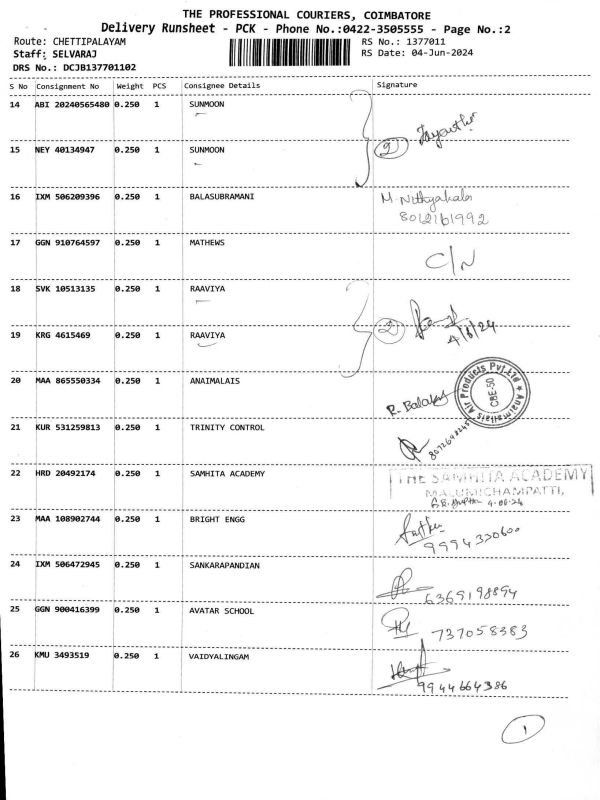 THE PROFESSIONAL COURIERS, COIMBATORE
Delivery Runsheet - PCK - Phone No.:0422-3505555 - Page No.:2
Route: CHETTIPALAYAM RS No.: 1377011
Staff: SELVARAJ RS Date: 04-Jun-2024
DRS No.: DCJB137701102
S No Consignment No Weight PCS Consignee Details Signature
14 ABI 20240565480 0.250 1 SUNMOON
Jayanthi
15 NEY 40134947 0.250 1 SUNMOON 2
16 IXM 506209396 0.250 1 BALASUBRAMANI M. Nithyakala
8012161992
17 GGN 910764597 0.250 1 MATHEWS C/N
18 SVK 10513135 0.250 1 RAAVIYA
2 4/6/24
19 KRG 4615469 0.250 1 RAAVIYA
20 MAA 865550334 0.250 1 ANAIMALAIS R. Balaji Anaimallais Air Products Pvt Ltd CBE-50
21 KUR 531259813 0.250 1 TRINITY CONTROL
22 HRD 20492174 0.250 1 SAMHITA ACADEMY THE SAMHITA ACADEMY
MALUMICHAMPATTI,
4-06-24
23 MAA 108902744 0.250 1 BRIGHT ENGG
9994330600
24 IXM 506472945 0.250 1 SANKARAPANDIAN
6369198894
25 GGN 900416399 0.250 1 AVATAR SCHOOL
737058383
26 KMU 3493519 0.250 1 VAIDYALINGAM
9944664386
1